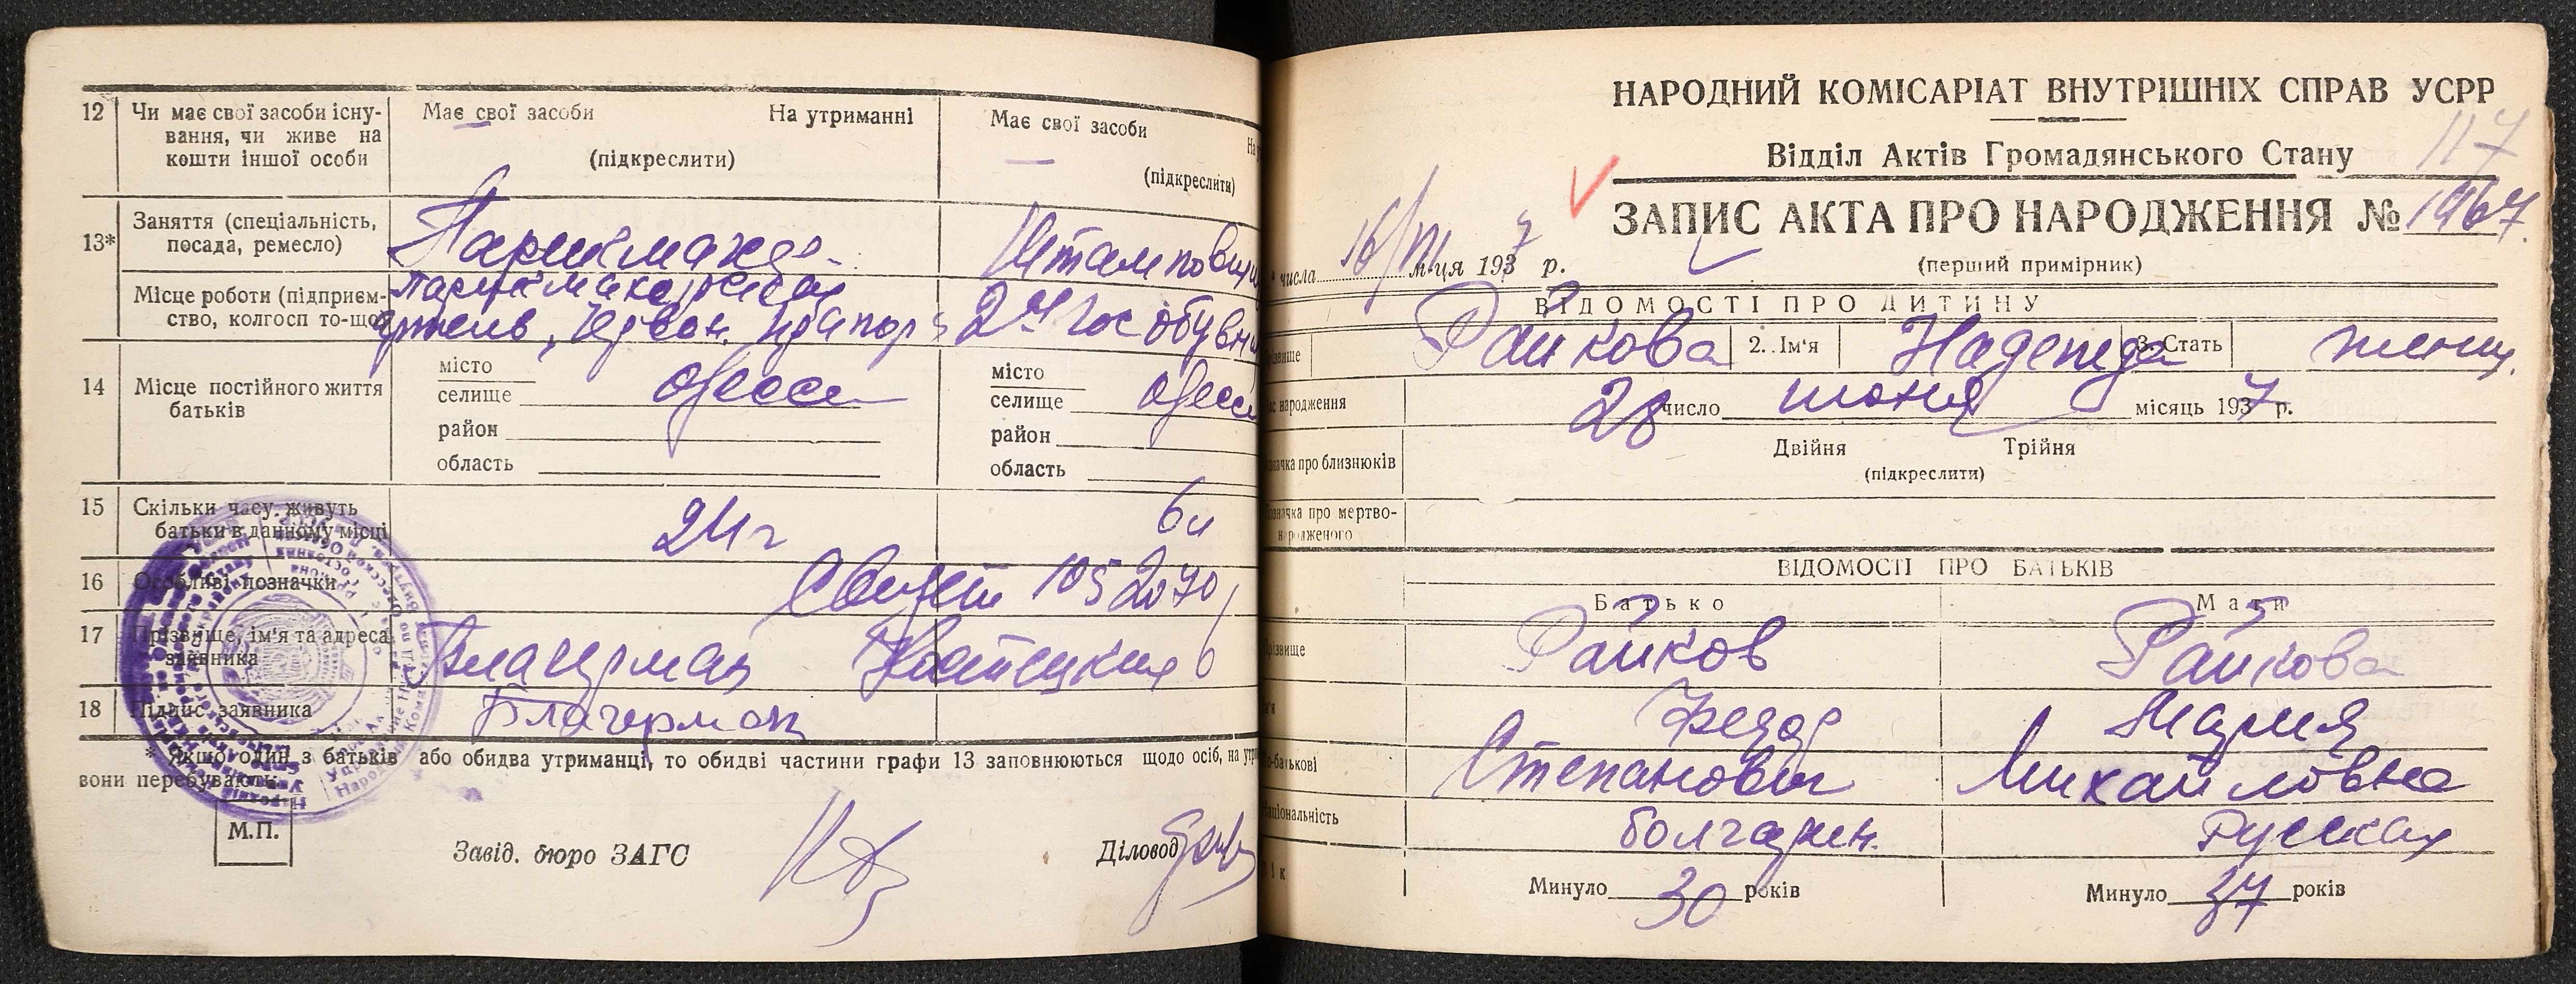 12 Чи має свої засоби існу-
вання, чи живе на
кошти іншої особи
Має свої засоби На утриманні
(підкреслити)
Має свої засоби
(підкреслити)
13* Заняття (спеціальність,
посада, ремесло)
Парикмахер
Штамповщи
Місце роботи (підприєм-
ство, колгосп то-що)
парикмахерская
артель, Червон. прапор
2я Гос обувн
14 Місце постійного життя
батьків
місто
селище
район
область
Одесса
місто
селище
район
область
Одесс
15 Скільки часу живуть
батьки в данному місці
24 г
16 Особливі позначки
17 Прізвище, ім'я та адреса
заявника
18 Підпис заявника
* Якщо один з батьків або обидва утриманці, то обидві частини графи 13 заповнюються щодо осіб, на
вони перебувають.
М.П.
Завід. бюро ЗАГС
Діловод
НАРОДНИЙ КОМІСАРІАТ ВНУТРІШНІХ СПРАВ УСРР
117
Відділ Актів Громадянського Стану
ЗАПИС АКТА ПРО НАРОДЖЕННЯ № 1967.
числа 16/VII м-ця 1937 р.
(перший примірник)
ВІДОМОСТІ ПРО ДИТИНУ
Райкова 2. Ім'я Надежда 3. Стать женщ.
народження 28 число июня місяць 1937 р.
Двійня Трійня
(підкреслити)
про близнюків
про мертво-
народженого
ВІДОМОСТІ ПРО БАТЬКІВ
Батько Мати
Райков Райкова
Федор Мария
Степанович Михайловна
болгарин. Русская
Минуло 30 років Минуло 37 років